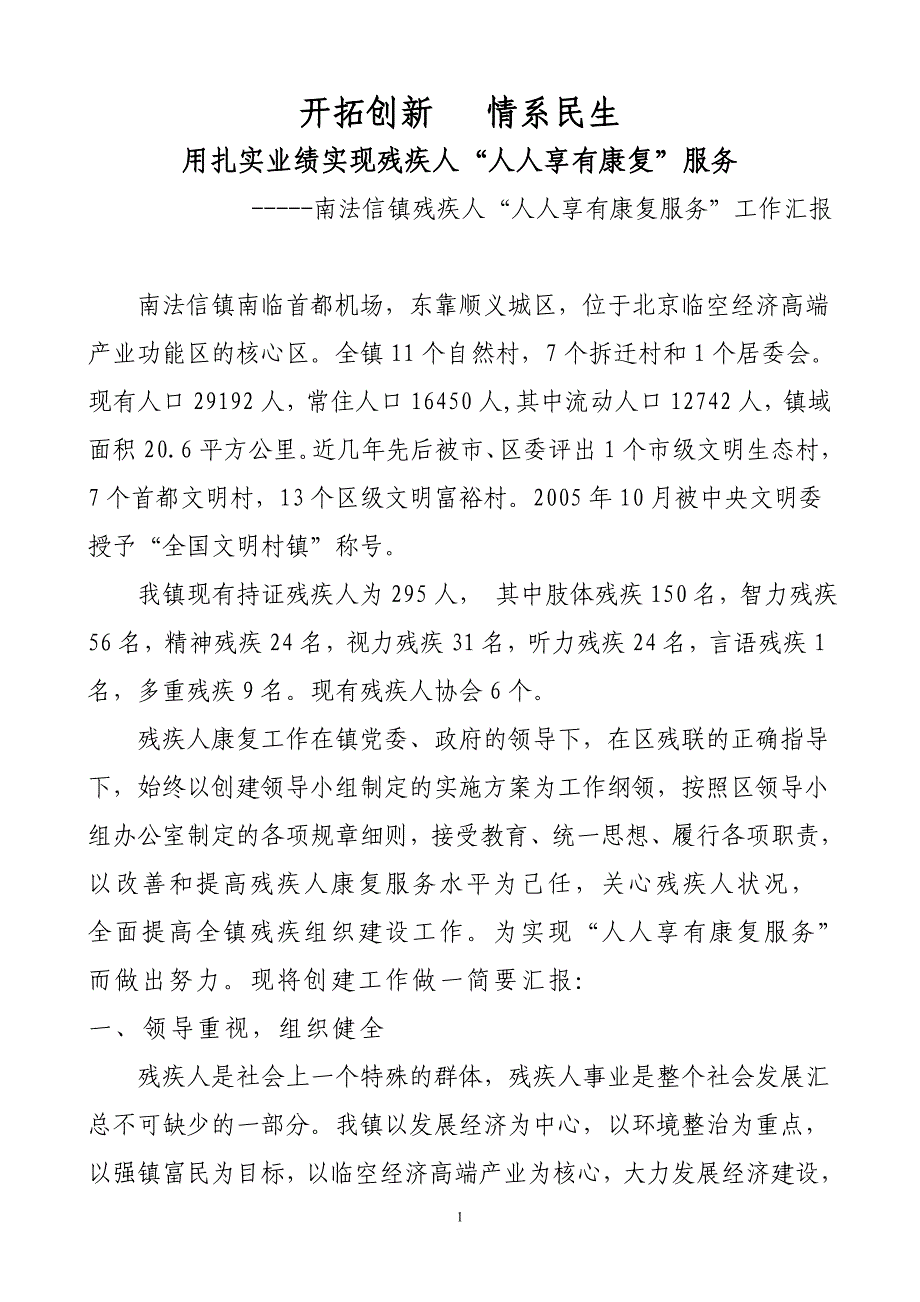 开拓创新　　情系民生
用扎实业绩实现残疾人“人人享有康复”服务
-----南法信镇残疾人“人人享有康复服务”工作汇报
南法信镇南临首都机场，东靠顺义城区，位于北京临空经济高端
产业功能区的核心区。全镇 11 个自然村，7 个拆迁村和 1 个居委会。
现有人口 29192 人，常住人口 16450 人,其中流动人口 12742 人，镇域
面积 20.6 平方公里。近几年先后被市、区委评出 1 个市级文明生态村，
7 个首都文明村，13 个区级文明富裕村。2005 年 10 月被中央文明委
授予“全国文明村镇”称号。
我镇现有持证残疾人为 295 人， 其中肢体残疾 150 名，智力残疾
56 名，精神残疾 24 名，视力残疾 31 名，听力残疾 24 名，言语残疾 1
名，多重残疾 9 名。现有残疾人协会 6 个。
残疾人康复工作在镇党委、政府的领导下，在区残联的正确指导
下，始终以创建领导小组制定的实施方案为工作纲领，按照区领导小
组办公室制定的各项规章细则，接受教育、统一思想、履行各项职责，
以改善和提高残疾人康复服务水平为己任，关心残疾人状况，
全面提高全镇残疾组织建设工作。为实现“人人享有康复服务”
而做出努力。现将创建工作做一简要汇报：
一、领导重视，组织健全
残疾人是社会上一个特殊的群体，残疾人事业是整个社会发展汇
总不可缺少的一部分。我镇以发展经济为中心，以环境整治为重点，
以强镇富民为目标，以临空经济高端产业为核心，大力发展经济建设，
1